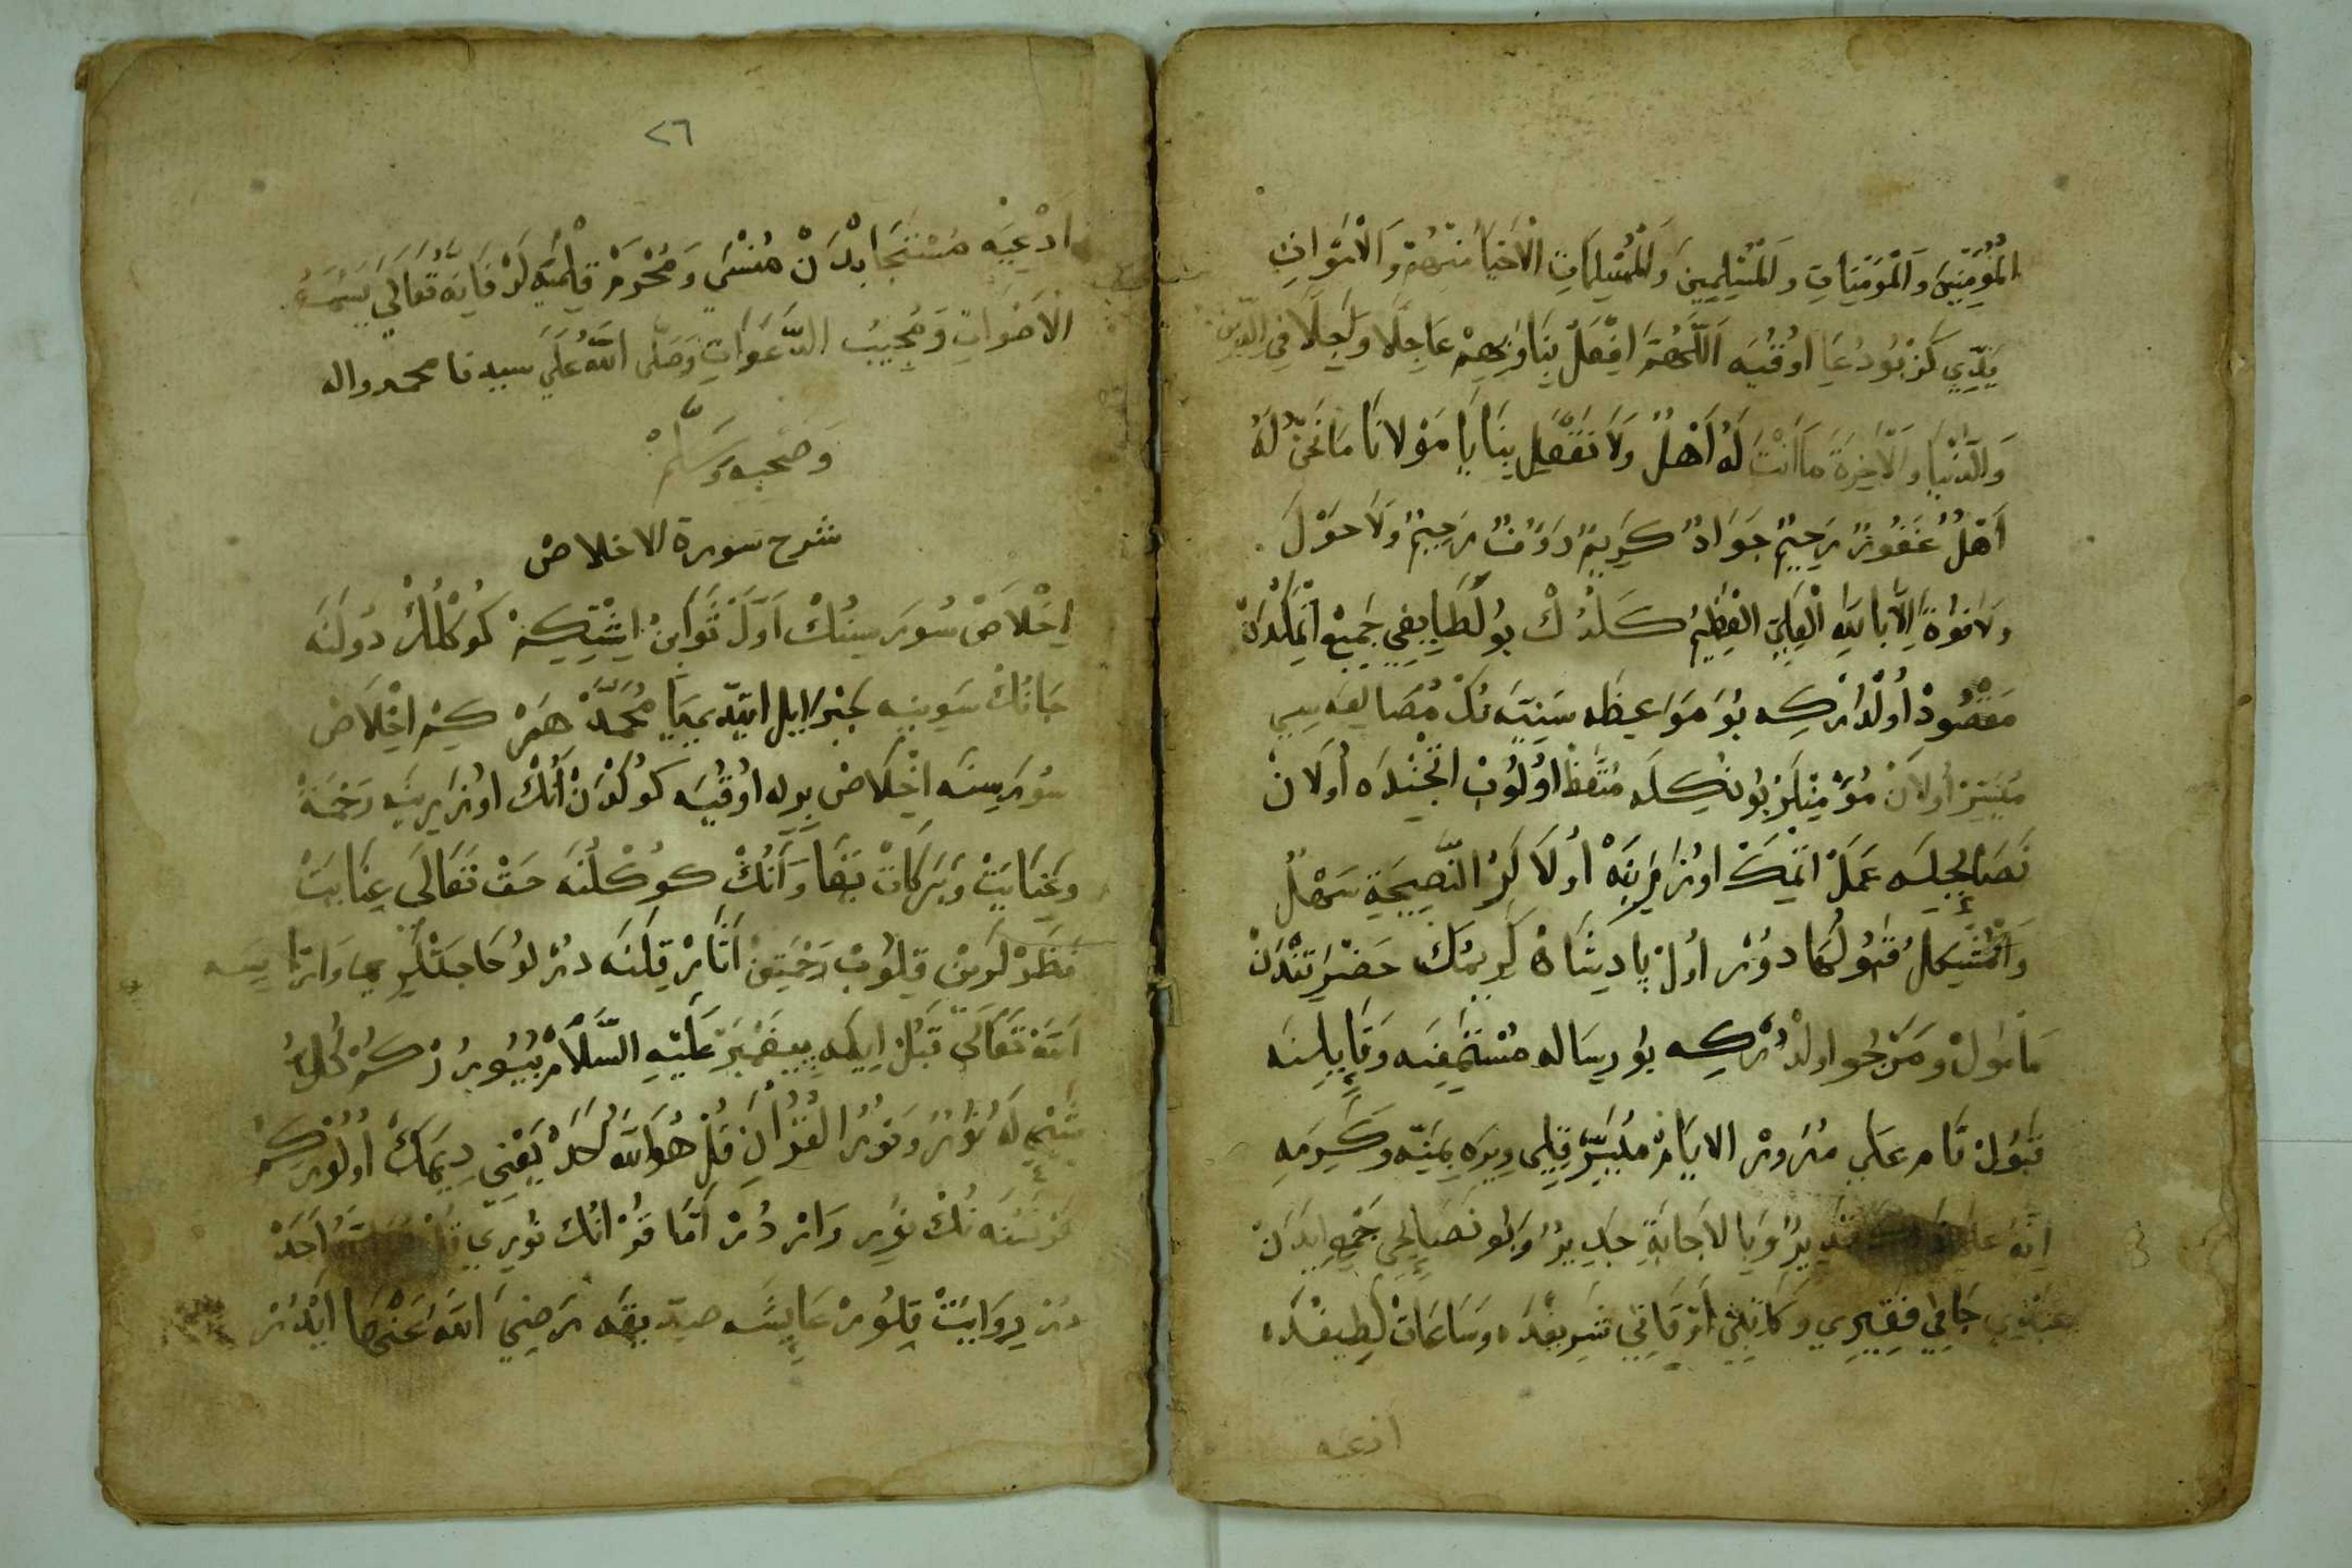 المؤمنين والمؤمنات والمسلمين والمسلمات الاحياء منهم والاموات
يدي كز بو دعا اوقيه اللهم افعل بنا وبهم عاجلا واجلا في الدين
والدنيا والاخرة ما انت له اهل ولا تفعل بنا يا مولانا ما نحن له
اهل غفور رحيم جواد كريم رؤف رحيم ولا حول
ولا قوة الا بالله العلي العظيم كلدك بو لطايفي جميع اتمكدن
مقصود اولدركه بو مواعظه سنيه نك مصالعه سى
ميسر اولان مؤمنلر بونكله متعظ اولوب اتجنده اولان
نصايحله عمل اتمك اوزرينه اولالر النصيحة سهل
والمشكل قبولها دور اول پادشاه كريمك حضرتندن
مأمول ومرجو اولدركه بو رساله مستمعنه وقايلنه
قبول تام على مرور الايام ميسر قيلى ويره بمنه وكرمه
انه على قدير وبالاجابة جدير وبو نصايحى جمع ايدن
جافى فقيري وكاتبى اوقاتى شريفده وساعات لطيفده
ادعيه
٢٦
ادعيه مستجابدن منسى ومحروم قلميه لر فانه تعالى يسمع
الاصوات ومجيب الدعوات وصلى الله على سيدنا محمد واله
وصحبه وسلم
شرح سورة الاخلاص
اخلاص سورسينك اول ثوابن ايشتكز كوكللر دولنه
جانك سوينه جبرايل ايتدى يا محمد هر كيم اخلاص
سورسنه اخلاص برله اوقيه كوكدن انك اوزرينه رحمة
وعنايت وبركات يغا وانك كوكلنه حق تعالى عنايت
نظرلرين قيلوب رحمتن انار قلنه درلو حاجتلرى وارايسه
الله تعالى قبل ايليه پيغمبر عليه السلام بيورر كه لكل
شئ له نور ونور القران قل هو الله احد يعنى ديمك اولور كه
هر نسنه نك نورى واردر اما قرانك نورى احد
در روايت قلور عايشه صديقه رضي الله عنها ايدر